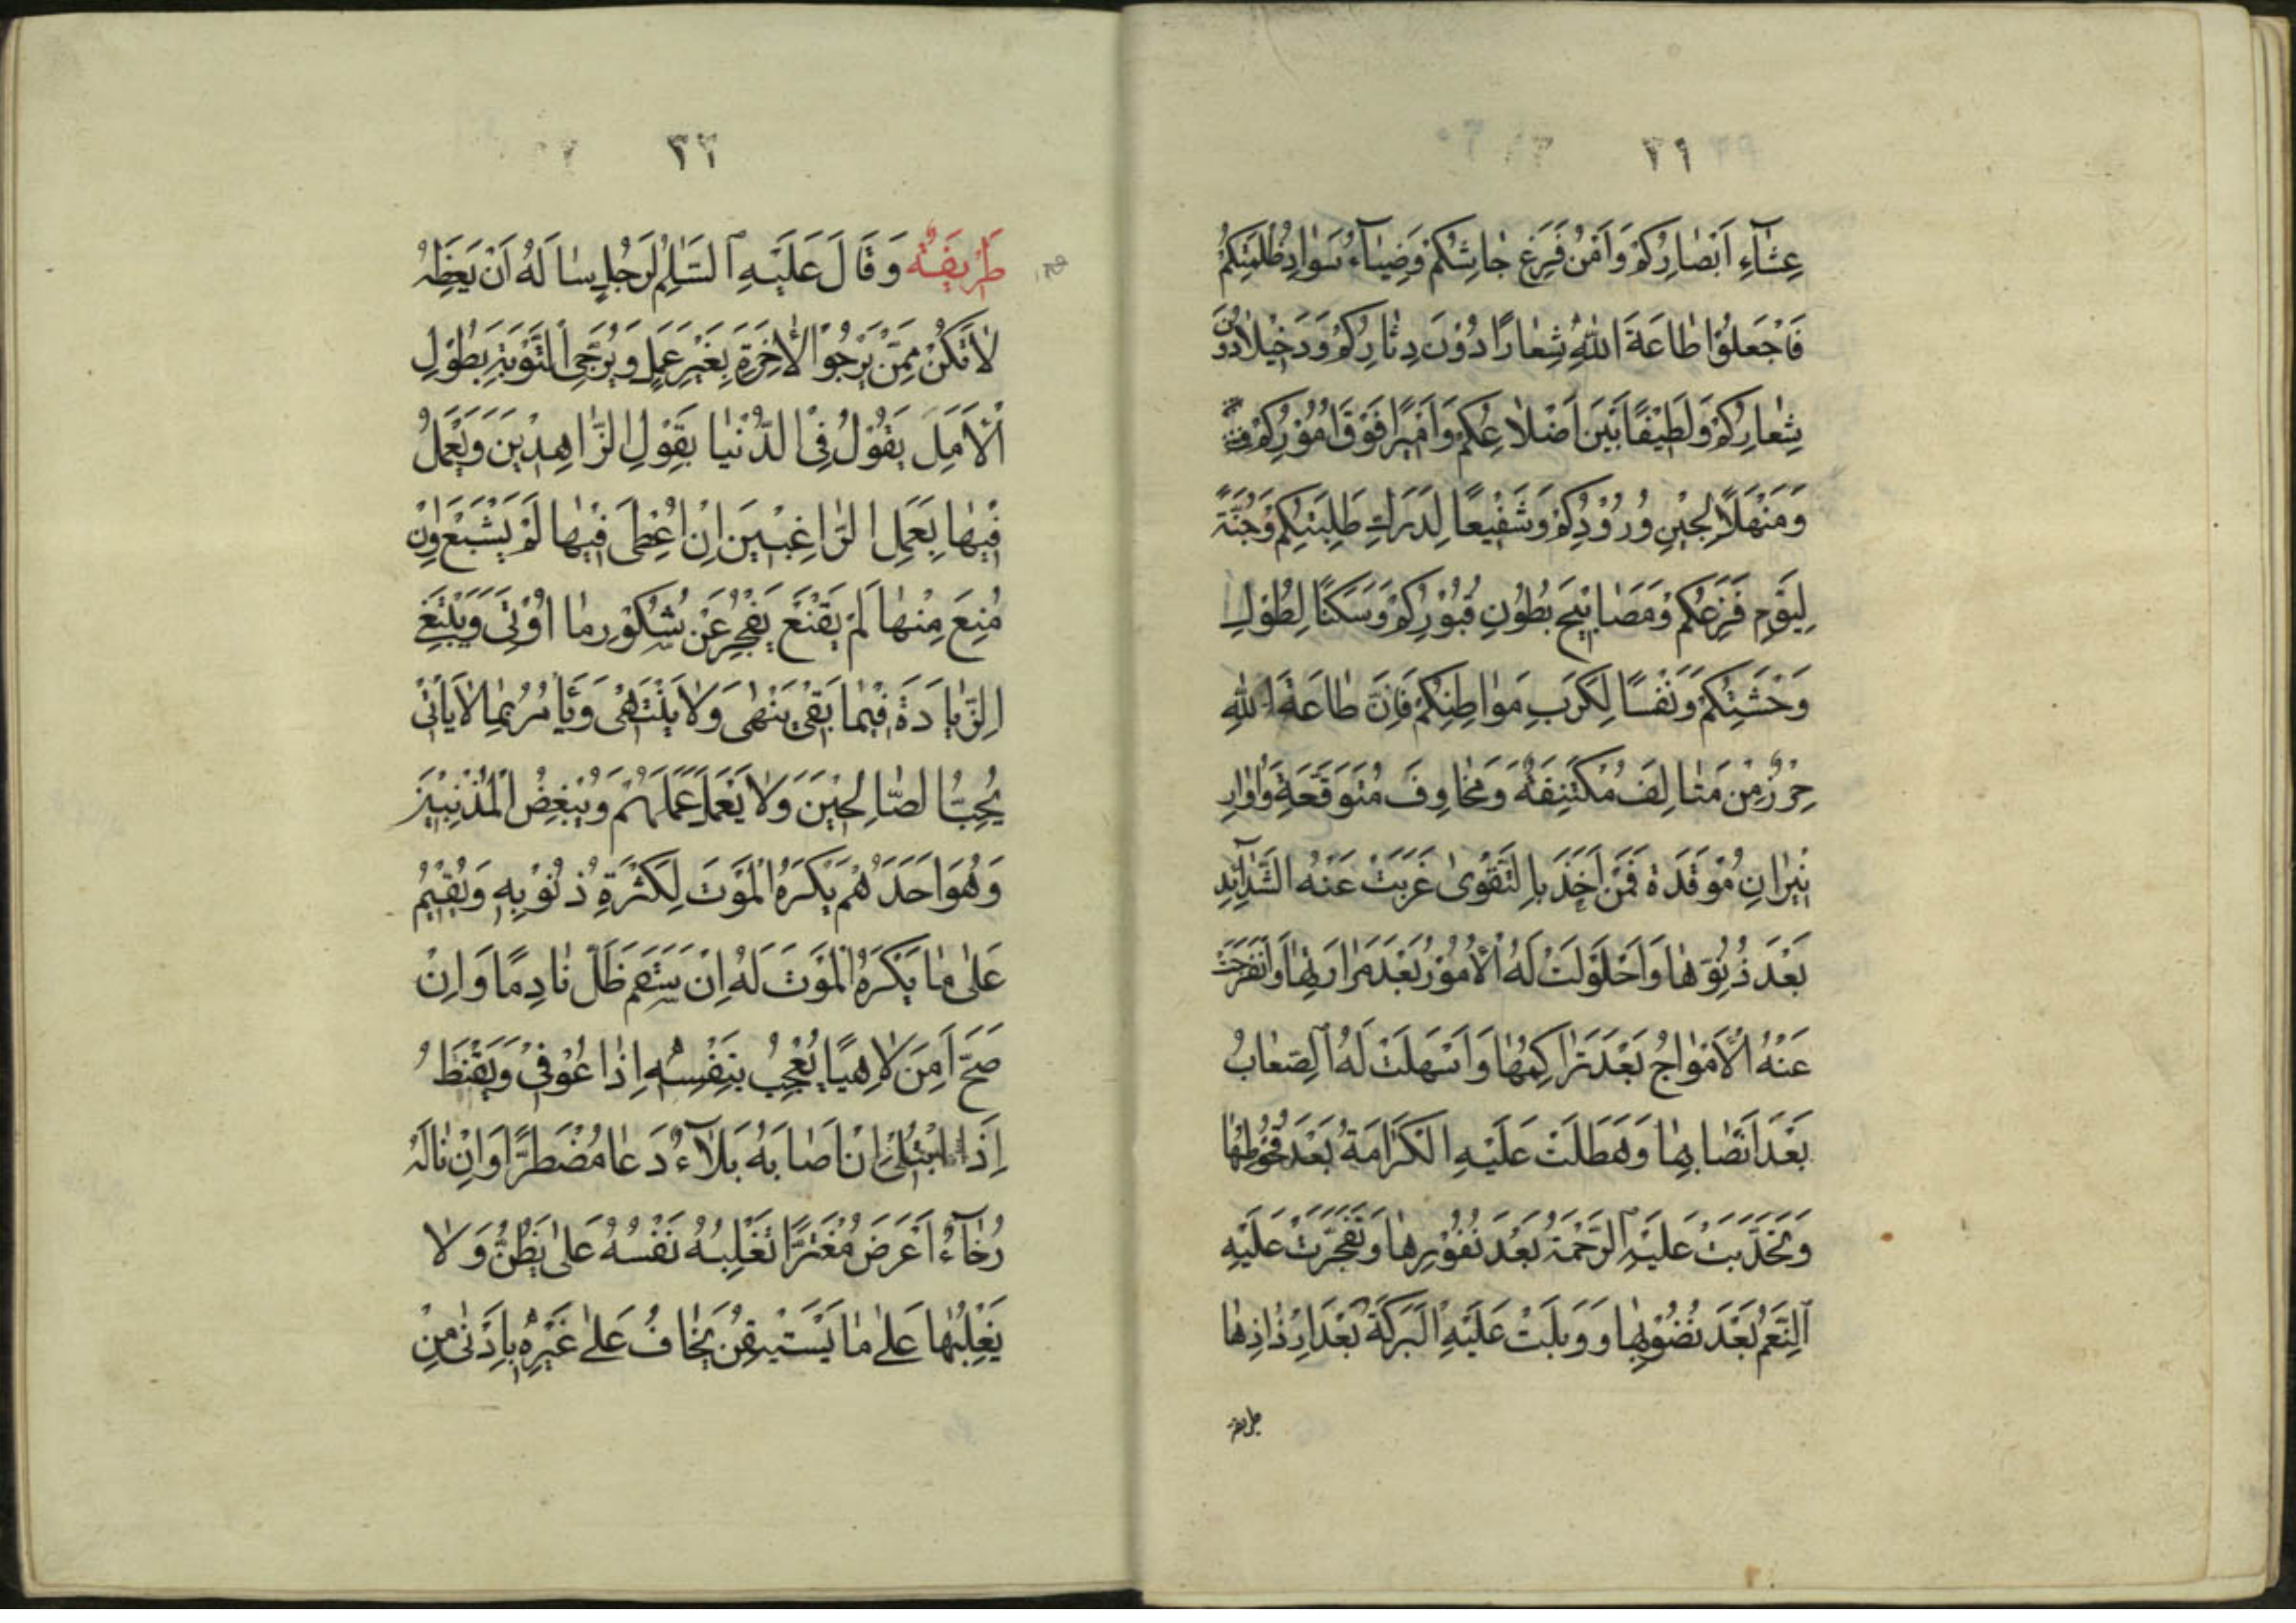 ٢١
عِشَآءِ اَبْصَارِكُمْ وَاَمْنُ فَزَعِ جَاشِكُمْ وَضِيَآءُ سَوَادِ ظُلْمَتِكُمْ
فَاجْعَلُوْا طَاعَةَ اللّٰهِ شِعَارًا دُوْنَ دِثَارِكُمْ وَدَخِيْلًا دُوْنَ
شِعَارِكُمْ وَلَطِيْفًا بَيْنَ اَضْلَاعِكُمْ وَاَمِيْرًا فَوْقَ اُمُوْرِكُمْ
وَمَنْهَلًا لِحِيْنِ وُرُوْدِكُمْ وَشَفِيْعًا لِدَرَكِ طَلِبَتِكُمْ وَجُنَّةً
لِيَوْمِ فَزَعِكُمْ وَمَصَابِيْحَ بُطُوْنِ قُبُوْرِكُمْ وَسَكَنًا لِطُوْلِ
وَحْشَتِكُمْ وَنَفَسًا لِكَرْبِ مَوَاطِنِكُمْ فَاِنَّ طَاعَةَ اللّٰهِ
حِرْزٌ مِنْ مَتَالِفَ مُكْتَنِفَةٍ وَمَخَاوِفَ مُتَوَقَّعَةٍ وَاُوَارِ
نِيْرَانٍ مُوْقَدَةٍ فَمَنْ اَخَذَ بِالتَّقْوٰى عَزَبَتْ عَنْهُ الشَّدَآئِدُ
بَعْدَ دُنُوِّهَا وَاحْلَوْلَتْ لَهُ الْاُمُوْرُ بَعْدَ مَرَارَتِهَا وَانْفَرَجَتْ
عَنْهُ الْاَمْوَاجُ بَعْدَ تَرَاكُمِهَا وَاَسْهَلَتْ لَهُ الصِّعَابُ
بَعْدَ اِنْصَابِهَا وَهَطَلَتْ عَلَيْهِ الْكَرَامَةُ بَعْدَ قُحُوْطِهَا
وَتَحَدَّبَتْ عَلَيْهِ الرَّحْمَةُ بَعْدَ نُفُوْرِهَا وَتَفَجَّرَتْ عَلَيْهِ
النِّعَمُ بَعْدَ نُضُوْبِهَا وَوَبَلَتْ عَلَيْهِ الْبَرَكَةُ بَعْدَ اِرْذَاذِهَا
طريفة
٢٢
طَرِيفَةٌ وَقَالَ عَلَيْهِ السَّلٰمُ لِرَجُلٍ سَاَلَهُ اَنْ يَعِظَهُ
لَا تَكُنْ مِمَّنْ يَرْجُوْا الْاٰخِرَةَ بِغَيْرِ عَمَلٍ وَيُرَجِّى التَّوْبَةَ بِطُوْلِ
الْاَمَلِ يَقُوْلُ فِى الدُّنْيَا بِقَوْلِ الزَّاهِدِيْنَ وَيَعْمَلُ
فِيْهَا بِعَمَلِ الرَّاغِبِيْنَ اِنْ اُعْطِىَ فِيْهَا لَمْ يَشْبَعْ وَاِنْ
مُنِعَ مِنْهَا لَمْ يَقْنَعْ يَعْجِزُ عَنْ شُكْرِ مَا اُوْتِىَ وَيَبْتَغِى
الزِّيَادَةَ فِيْمَا بَقِىَ يَنْهٰى وَلَا يَنْتَهِىْ وَيَأْمُرُ بِمَا لَا يَاْتِىْ
يُحِبُّ الصَّالِحِيْنَ وَلَا يَعْمَلُ عَمَلَهُمْ وَيُبْغِضُ الْمُذْنِبِيْنَ
وَهُوَ اَحَدُهُمْ يَكْرَهُ الْمَوْتَ لِكَثْرَةِ ذُنُوْبِهٖ وَيُقِيْمُ
عَلٰى مَا يَكْرَهُ الْمَوْتَ لَهُ اِنْ سَقِمَ ظَلَّ نَادِمًا وَاِنْ
صَحَّ اَمِنَ لَاهِيًا يُعْجِبُ بِنَفْسِهٖ اِذَا عُوْفِىَ وَيَقْنَطُ
اِذَا ابْتُلِىَ اِنْ اَصَابَهُ بَلَآءٌ دَعَا مُضْطَرًّا وَاِنْ نَالَهُ
رَخَآءٌ اَعْرَضَ مُغْتَرًّا تَغْلِبُهُ نَفْسُهُ عَلٰى يَظُنُّ وَلَا
يَغْلِبُهَا عَلٰى مَا يَسْتَيْقِنُ يَخَافُ عَلٰى غَيْرِهٖ بِاَدْنٰى مِنْ